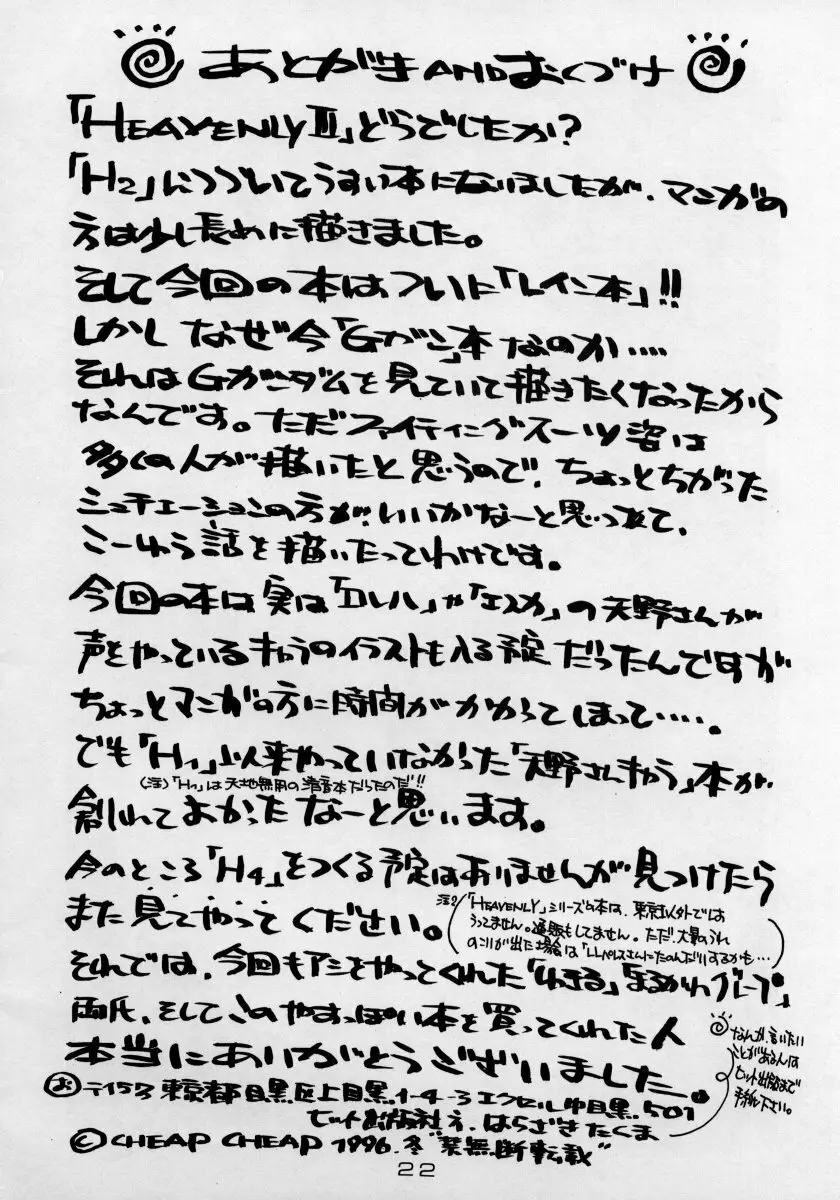 あとがきANDおくづけ
「HEAVENLY III」どうでしたか?
「H2」につづいてうすい本になりましたが、マンガの
方は少し長めに描きました。
そして今回の本はついに「レイン本」!!
しかしなぜ今「Gガン」本なのか‥‥
それはGガンダムを見ていて描きたくなったから
なんです。ただファイティングスーツ姿は
多くの人が描いたと思うので、ちょっとちがった
シュチェーションの方が、いいかなーと思って、
こーゆう話を描いたってわけです。
今回の本は実は「ロレル」や「エスカ」の天野さんが
声をやっているキャラのイラストも入る予定だったんですが
ちょっとマンガの方に時間がかかってしまって‥‥。
でも「H1」以来やっていなかった「天野さんキャラ」本が
(注)「H1」は天地無用の清音本だったのだ!!
創れてよかったなーと思います。
今のところ「H4」をつくる予定はありませんが見つけたら
また見てやってください。
注2(「HEAVENLY」シリーズの本は、東京以外では
うってません。通販もしてません。ただ、大量のうれ
のこりが出た場合は「LLパレスさんにたのんだりするかも…)
それでは、今回もアシをやってくれた「ゆきる」「まるかわグループ」
両氏、そしてこのやすっぽい本を買ってくれた人
本当にありがとうございました。
なんか、言いたい
ことがあるんは
ヒット出版まで
手紙下さい。
お 〒153 東京都目黒区上目黒1-4-3エクセル中目黒501
ヒット出版社方、はらざきたくま
©CHEAP CHEAP 1996.冬"禁無断転載"
22